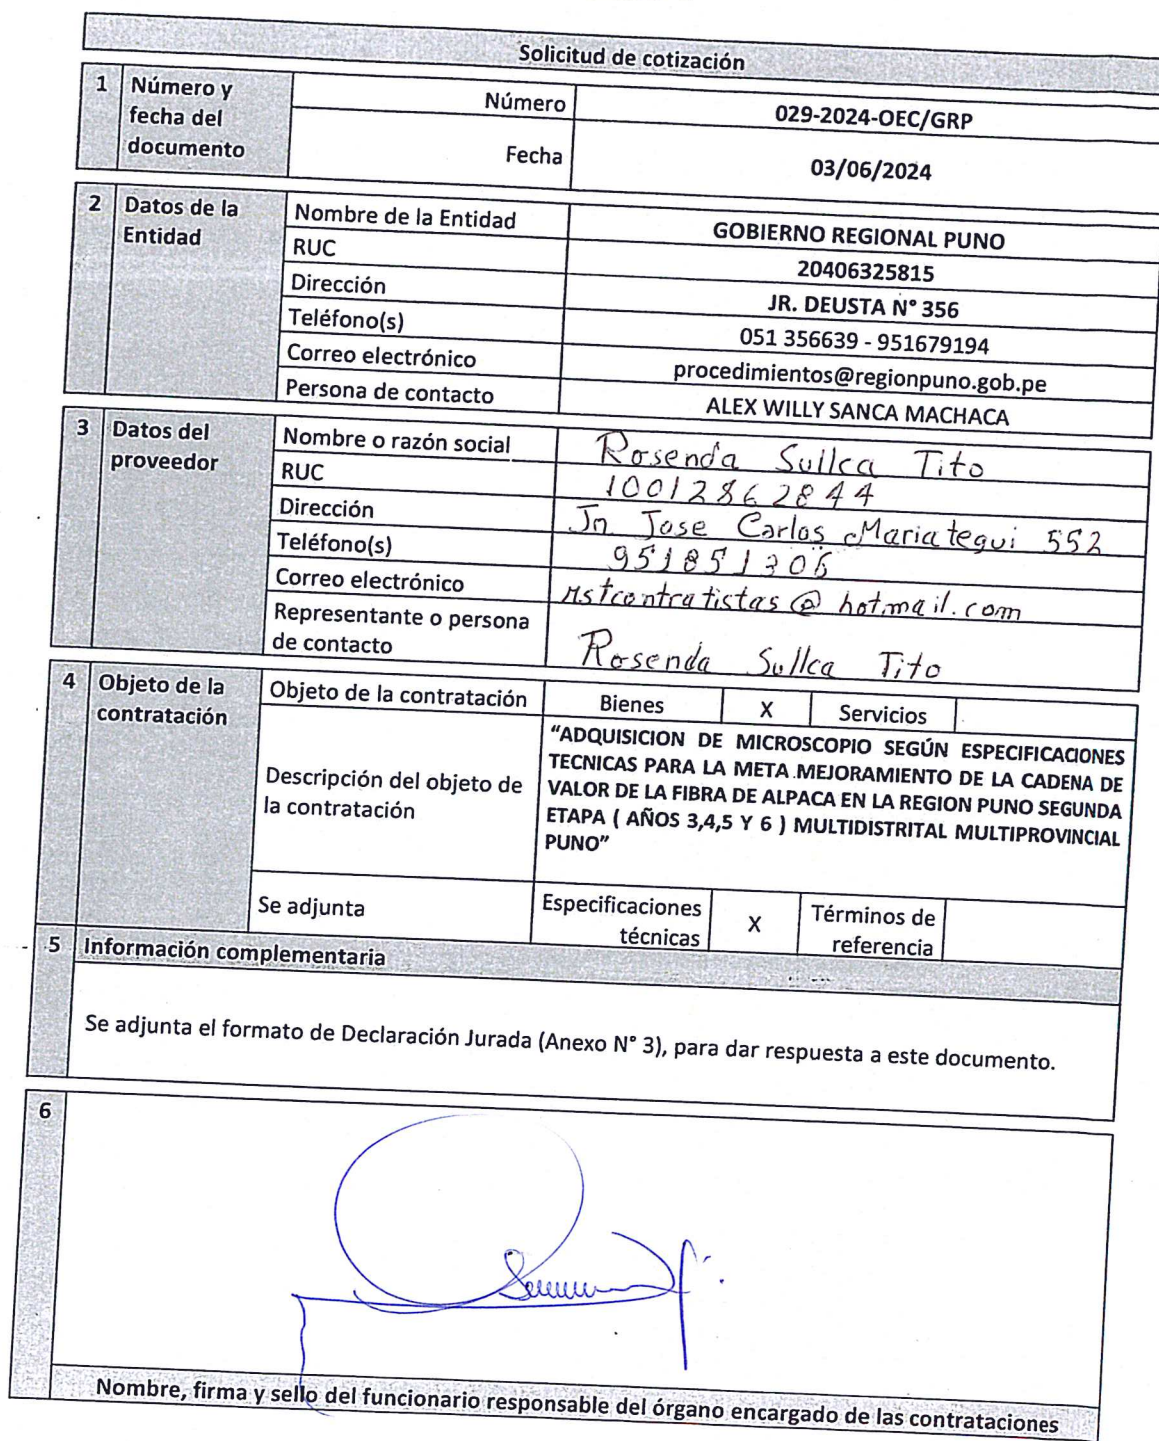 Solicitud de cotización
1 Número y fecha del documento
Número 029-2024-OEC/GRP
Fecha 03/06/2024
2 Datos de la Entidad
Nombre de la Entidad GOBIERNO REGIONAL PUNO
RUC 20406325815
Dirección JR. DEUSTA N° 356
Teléfono(s) 051 356639 - 951679194
Correo electrónico procedimientos@regionpuno.gob.pe
Persona de contacto ALEX WILLY SANCA MACHACA
3 Datos del proveedor
Nombre o razón social Rosenda Sullca Tito
RUC 10012862844
Dirección Jr. Jose Carlos Mariategui 552
Teléfono(s) 951851306
Correo electrónico rstcontratistas@hotmail.com
Representante o persona de contacto Rosenda Sullca Tito
4 Objeto de la contratación
Objeto de la contratación Bienes X Servicios
Descripción del objeto de la contratación
"ADQUISICION DE MICROSCOPIO SEGÚN ESPECIFICACIONES
TECNICAS PARA LA META MEJORAMIENTO DE LA CADENA DE
VALOR DE LA FIBRA DE ALPACA EN LA REGION PUNO SEGUNDA
ETAPA ( AÑOS 3,4,5 Y 6 ) MULTIDISTRITAL MULTIPROVINCIAL
PUNO"
Se adjunta Especificaciones técnicas X Términos de referencia
5 Información complementaria
Se adjunta el formato de Declaración Jurada (Anexo N° 3), para dar respuesta a este documento.
6
Nombre, firma y sello del funcionario responsable del órgano encargado de las contrataciones